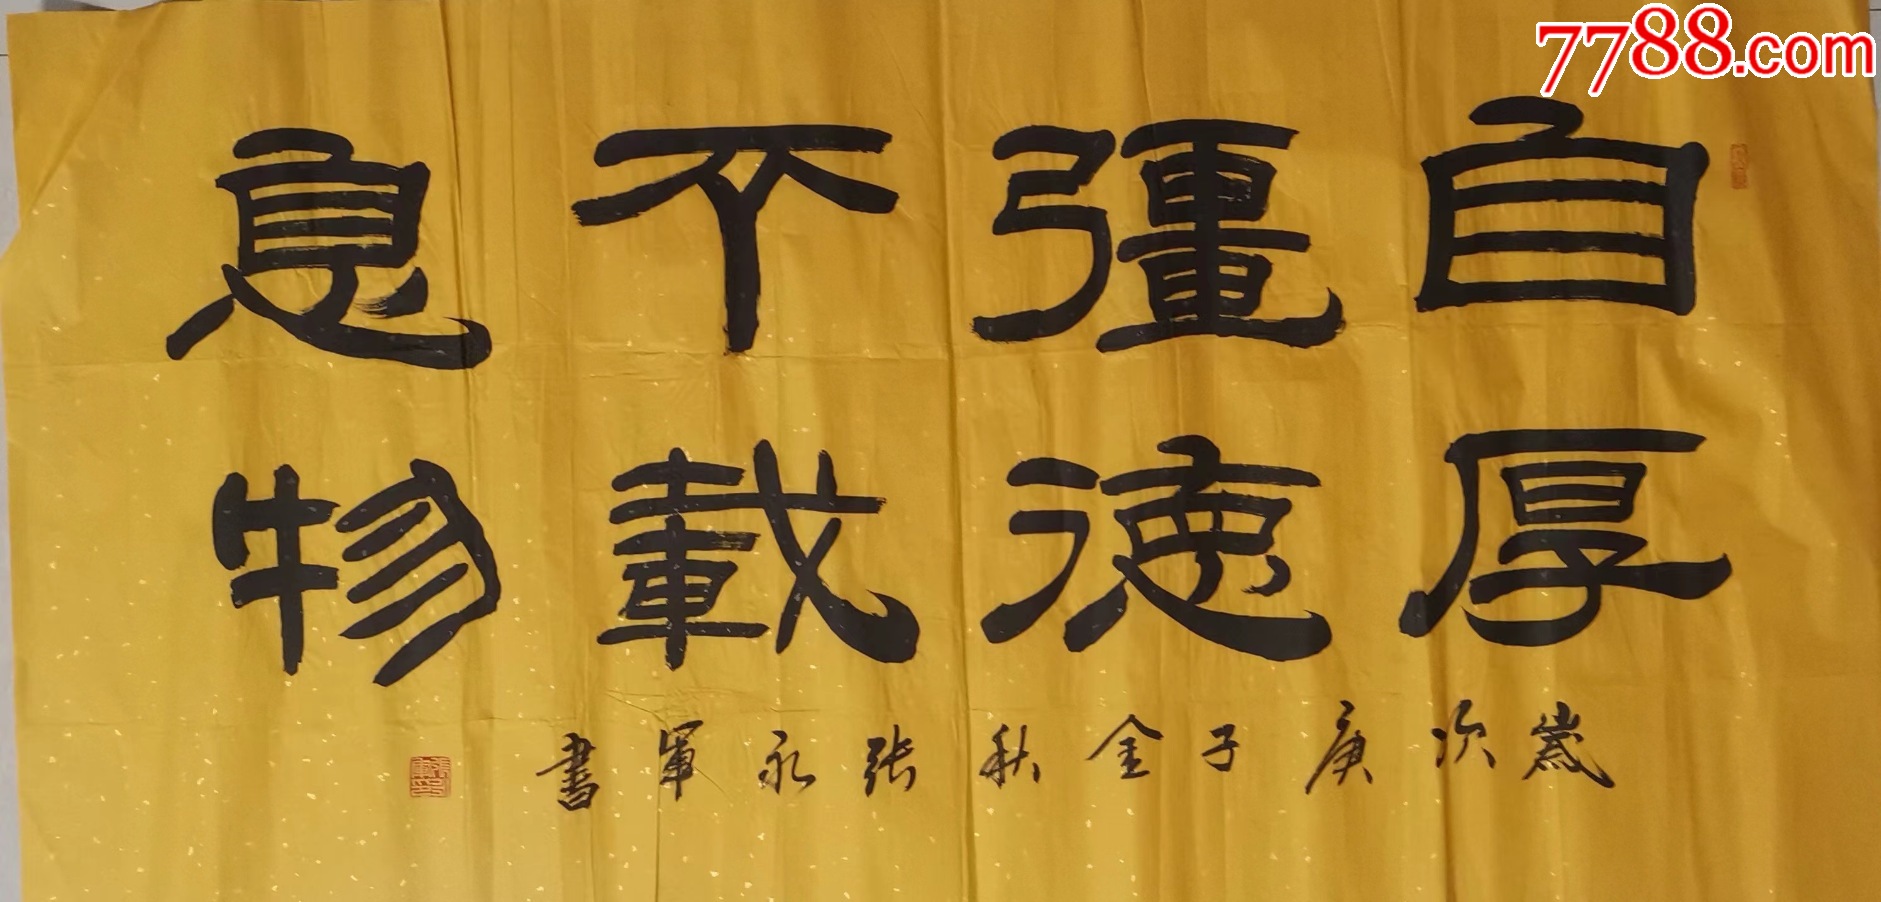 7788.com
自彊不息
厚德載物
歲次庚子金秋張永軍書